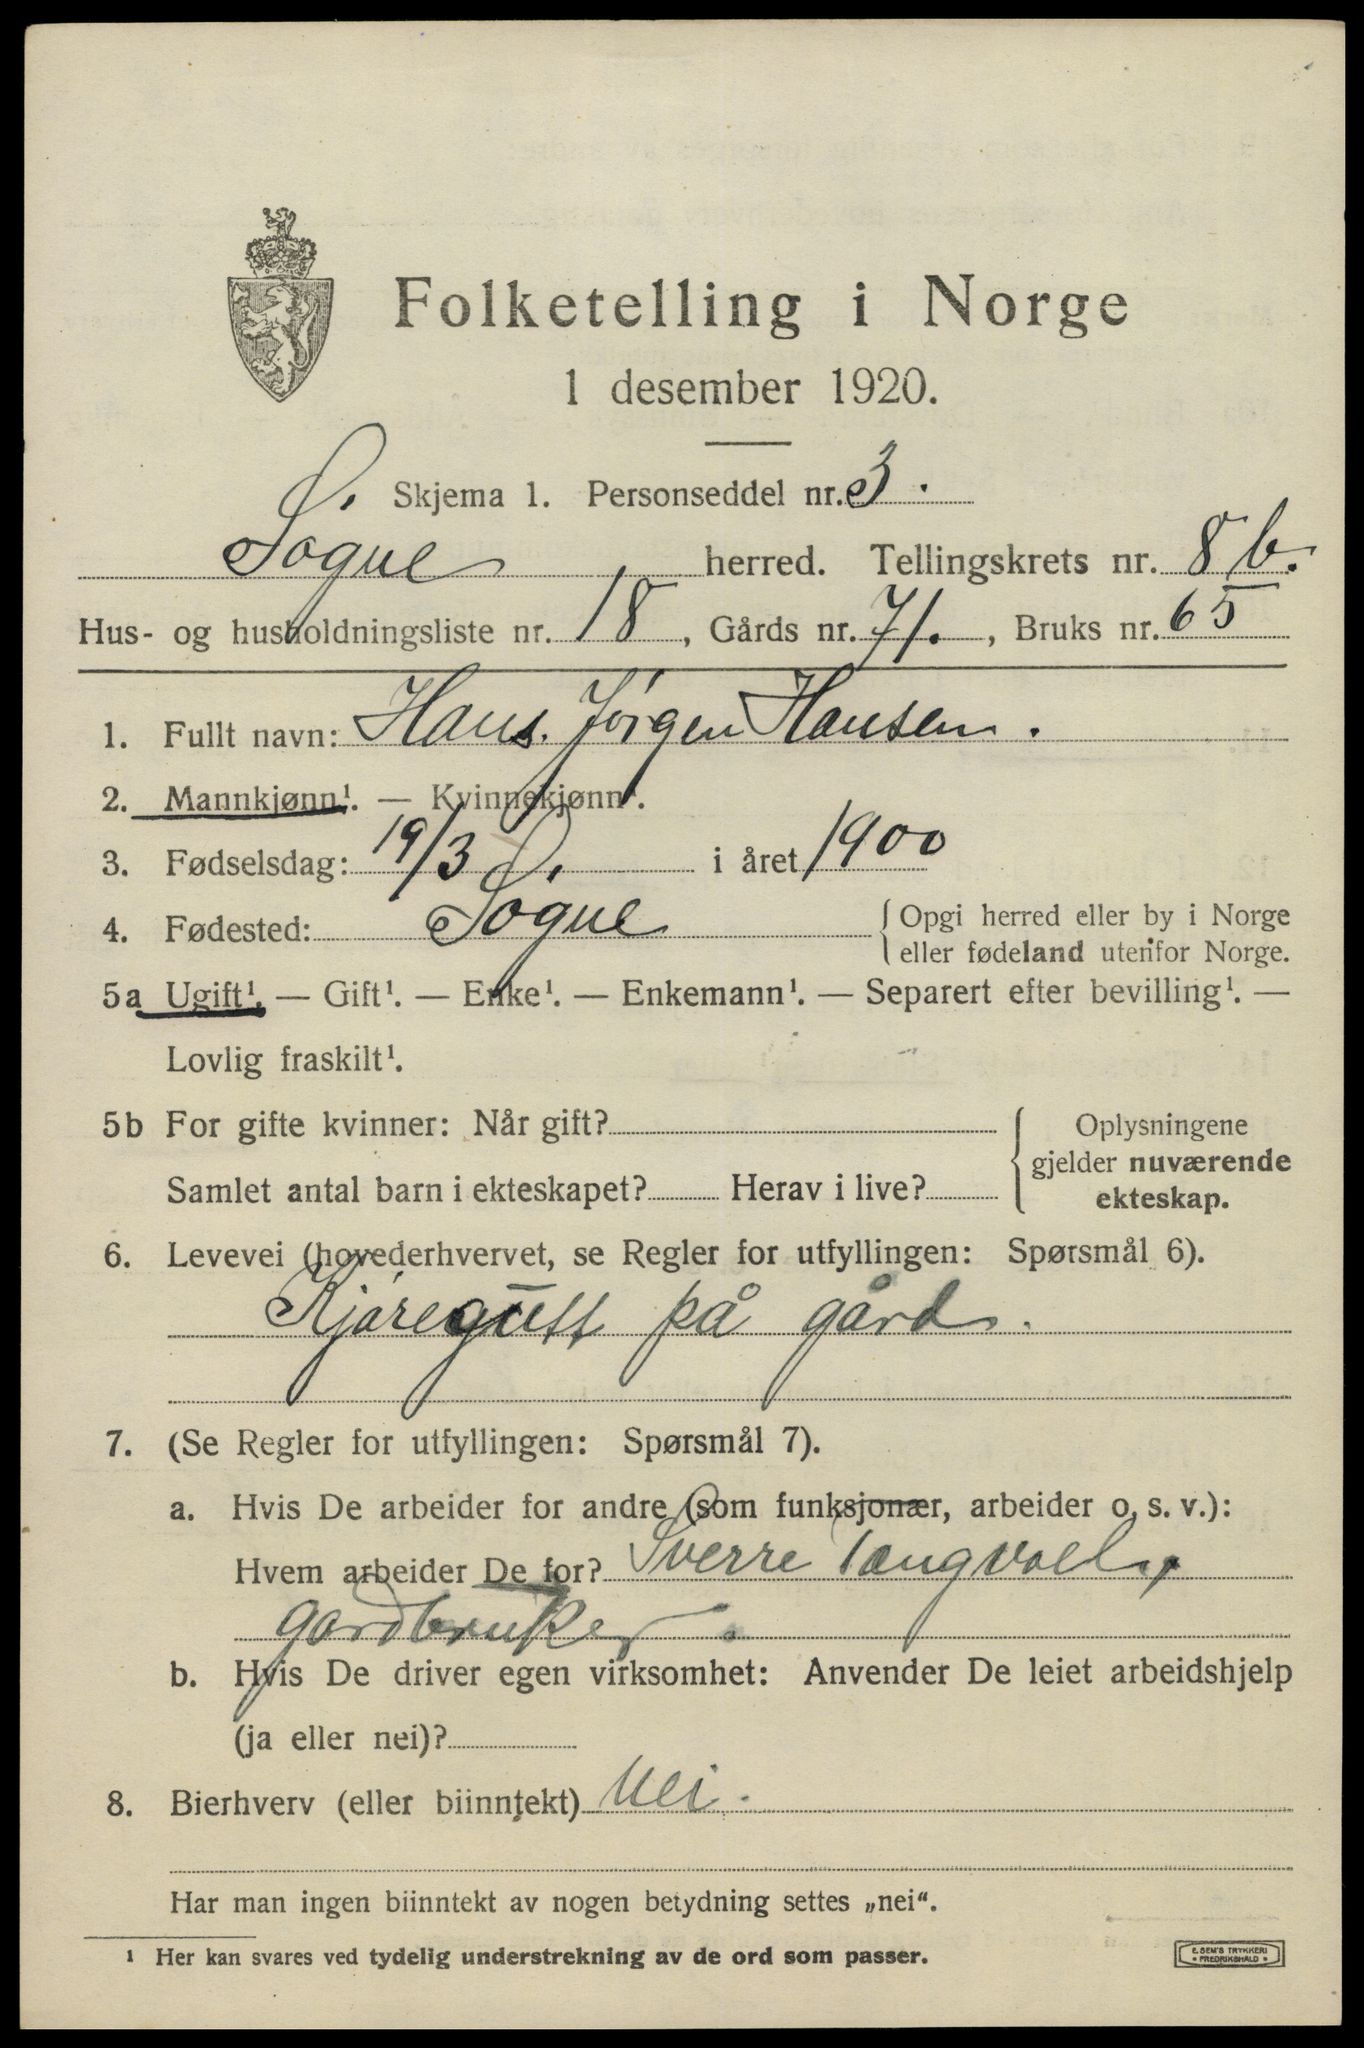 Folketelling i Norge
1 desember 1920.
Skjema 1. Personseddel nr. 3.
Søgne herred. Tellingskrets nr. 8 b.
Hus- og husholdningsliste nr. 18, Gårds nr. 71., Bruks nr. 65
1. Fullt navn: Hans. Jørgen Hansen.
2. Mannkjønn¹. — Kvinnekjønn¹.
3. Fødselsdag: 19/3 i året 1900
4. Fødested: Søgne { Opgi herred eller by i Norge
eller fødeland utenfor Norge.
5a Ugift¹. — Gift¹. — Enke¹. — Enkemann¹. — Separert efter bevilling¹. —
Lovlig fraskilt¹.
5b For gifte kvinner: Når gift? { Oplysningene
gjelder nuværende
Samlet antal barn i ekteskapet? Herav i live? ekteskap.
6. Levevei (hovederhvervet, se Regler for utfyllingen: Spørsmål 6).
Kjøregutt på gård.
7. (Se Regler for utfyllingen: Spørsmål 7).
a. Hvis De arbeider for andre (som funksjonær, arbeider o. s. v.):
Hvem arbeider De for? Sverre Tangvall,
gardbruker.
b. Hvis De driver egen virksomhet: Anvender De leiet arbeidshjelp
(ja eller nei)?
8. Bierhverv (eller biinntekt) Nei.
Har man ingen biinntekt av nogen betydning settes „nei".
¹ Her kan svares ved tydelig understrekning av de ord som passer.
E. SEM'S TRYKKERI
FREDRIKSHALD